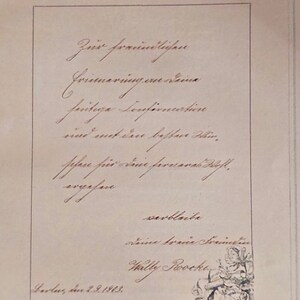 Zur freundlichen
Erinnerung an Deine
heutige Confirmation
und mit den besten Wün-
schen für Dein ferneres Wohl-
ergehen
verbleibe
Deine treue Freundin
Berlin, den 2.9.1903.